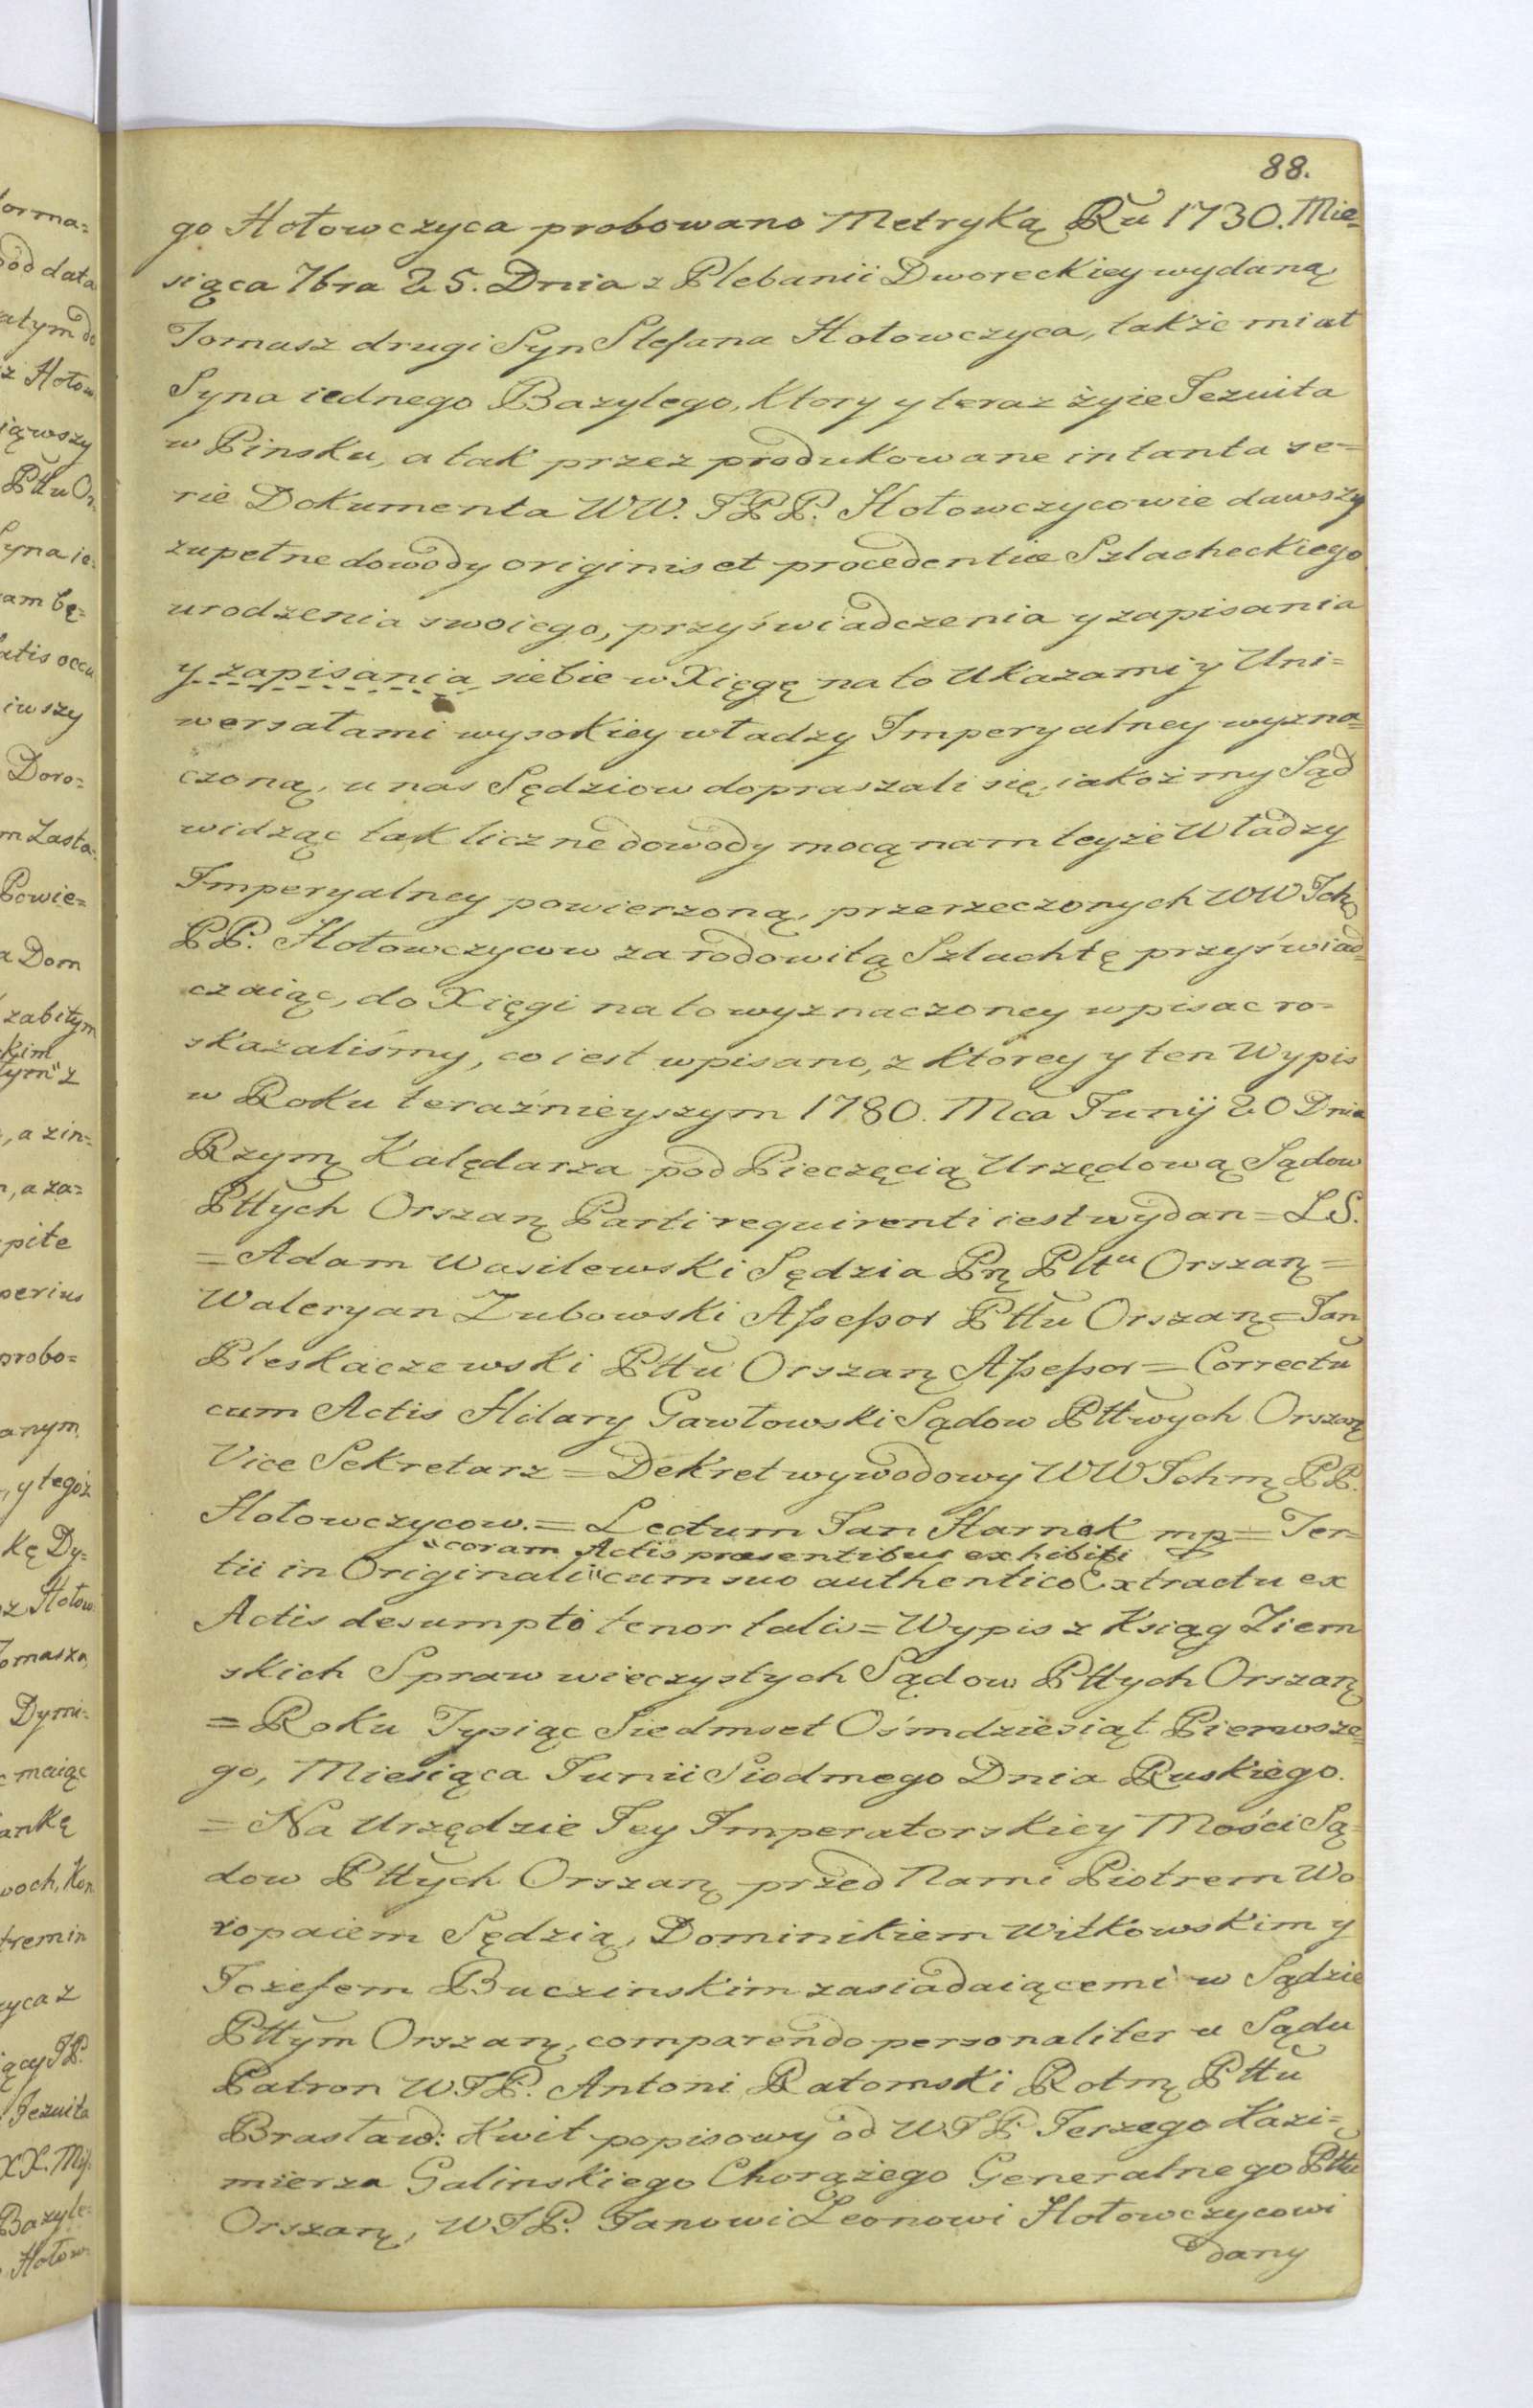 88.
go Hołowczyca probowano Metryką Ru 1730. Mie=
siąca 7bra 25. Dnia z Plebanii Dworeckiey wydaną
Tomasz drugi Syn Stefana Hołowczyca, także miał
Syna iednego Bazylego, Ktory y teraz żyie Jezuita
w Pinsku, a tak przez produkowane in tanta se=
rie Dokumenta WW. JPP. Hołowczycowie dawszy
zupełne dowody originis et procedentiæ Szlacheckiego
urodzenia swoiego, przyświadczenia y zapisania
y zapisania siebie w Xięgę na to Ukazami y Uni=
wersałami wysokiey władzy Imperyalney wyzna=
czoną, u nas Sędziow dopraszali się, iakoż my Sąd
widząc tak liczne dowody mocą nam teyże Władzy
Imperyalney powierzoną, przerzeczonych WW Ich
PP. Hołowczycow za rodowitą Szlachtę przyświad=
czaiąc, do Xięgi na to wyznaczoney wpisac ro=
skazaliśmy, co iest wpisano, z Ktorey y ten Wypis
w Roku teraźnieyszym 1780. Mca Junij 20 Dnia
Rzymſ Kalędarza pod Pieczęcią Urzędową Sądow
Pttych Orszanſ Parti requirenti iest wydan = LS.
= Adam Wasilewski Sędzia Pnſ Pttu Orszanſ =
Waleryan Zubowski Aſseſsor Pttu Orszanſ = Jan
Pleskaczewski Pttu Orszanſ Aſseſsor = Correctu
cum Actis Hilary Gawłowski Sądow Pttwych Orszanſ
Vice Sekretarz = Dekret wywodowy WW Ichmſ PP.
Hołowczycow. = Lectum Jan Harnak mp = Ter=
"coram Actis præsentibus exhibiti
tii in Originali "cum suo authentico Extractu ex
Actis desumpto tenor talis = Wypis z Ksiąg Ziem
skich Spraw wieczystych Sądow Pttych Orszanſ
= Roku Tysiąc Siedmset Ośmdziesiąt Pierwsze=
go, Miesiąca Junii Siodmego Dnia Ruskiego.
= Na Urzędzie Jey Imperatorskiey Mości Są=
dow Pttych Orszanſ przed Nami Piotrem Wo
łopaiem Sędzią, Dominikiem Witkowskim y
Jozefem Buczinskim zasiadaiącemi w Sądzie
Pttym Orszanſ, comparendo personaliter u Sądu
Patron WJP. Antoni Ratomski Rotmſ Pttu
Brasław: Kwit popisowy od WJP. Jerzego Kazi=
mierza Galinskiego Chorążego Generalnego Pttu
Orszanſ, WJP. Janowi Leonowi Hołowczycowi
dany